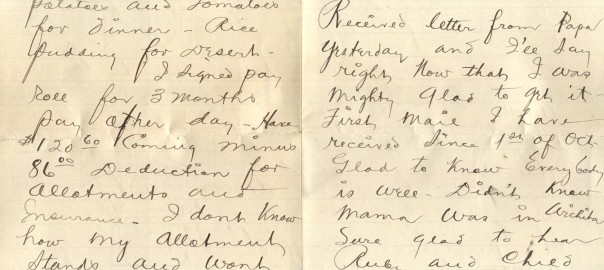 Potatoes and Tomatoes
for Dinner - Rice
Pudding for Desert -
I signed pay
Roll for 3 months
pay other day - Have
$120 60 Coming minus
86 00 Deduction for
Allotments and
Insurance. I dont Know
how my Allotment
Stands and wont
Received letter from Papa
Yesterday and I'll Say
right Now that I was
Mighty Glad to get it
First Mail I have
received Since 1st of Oct.
Glad to Know Everybody
is well. Didn't Know
Mama was in Wichita
Sure glad to hear
Ruby and Child